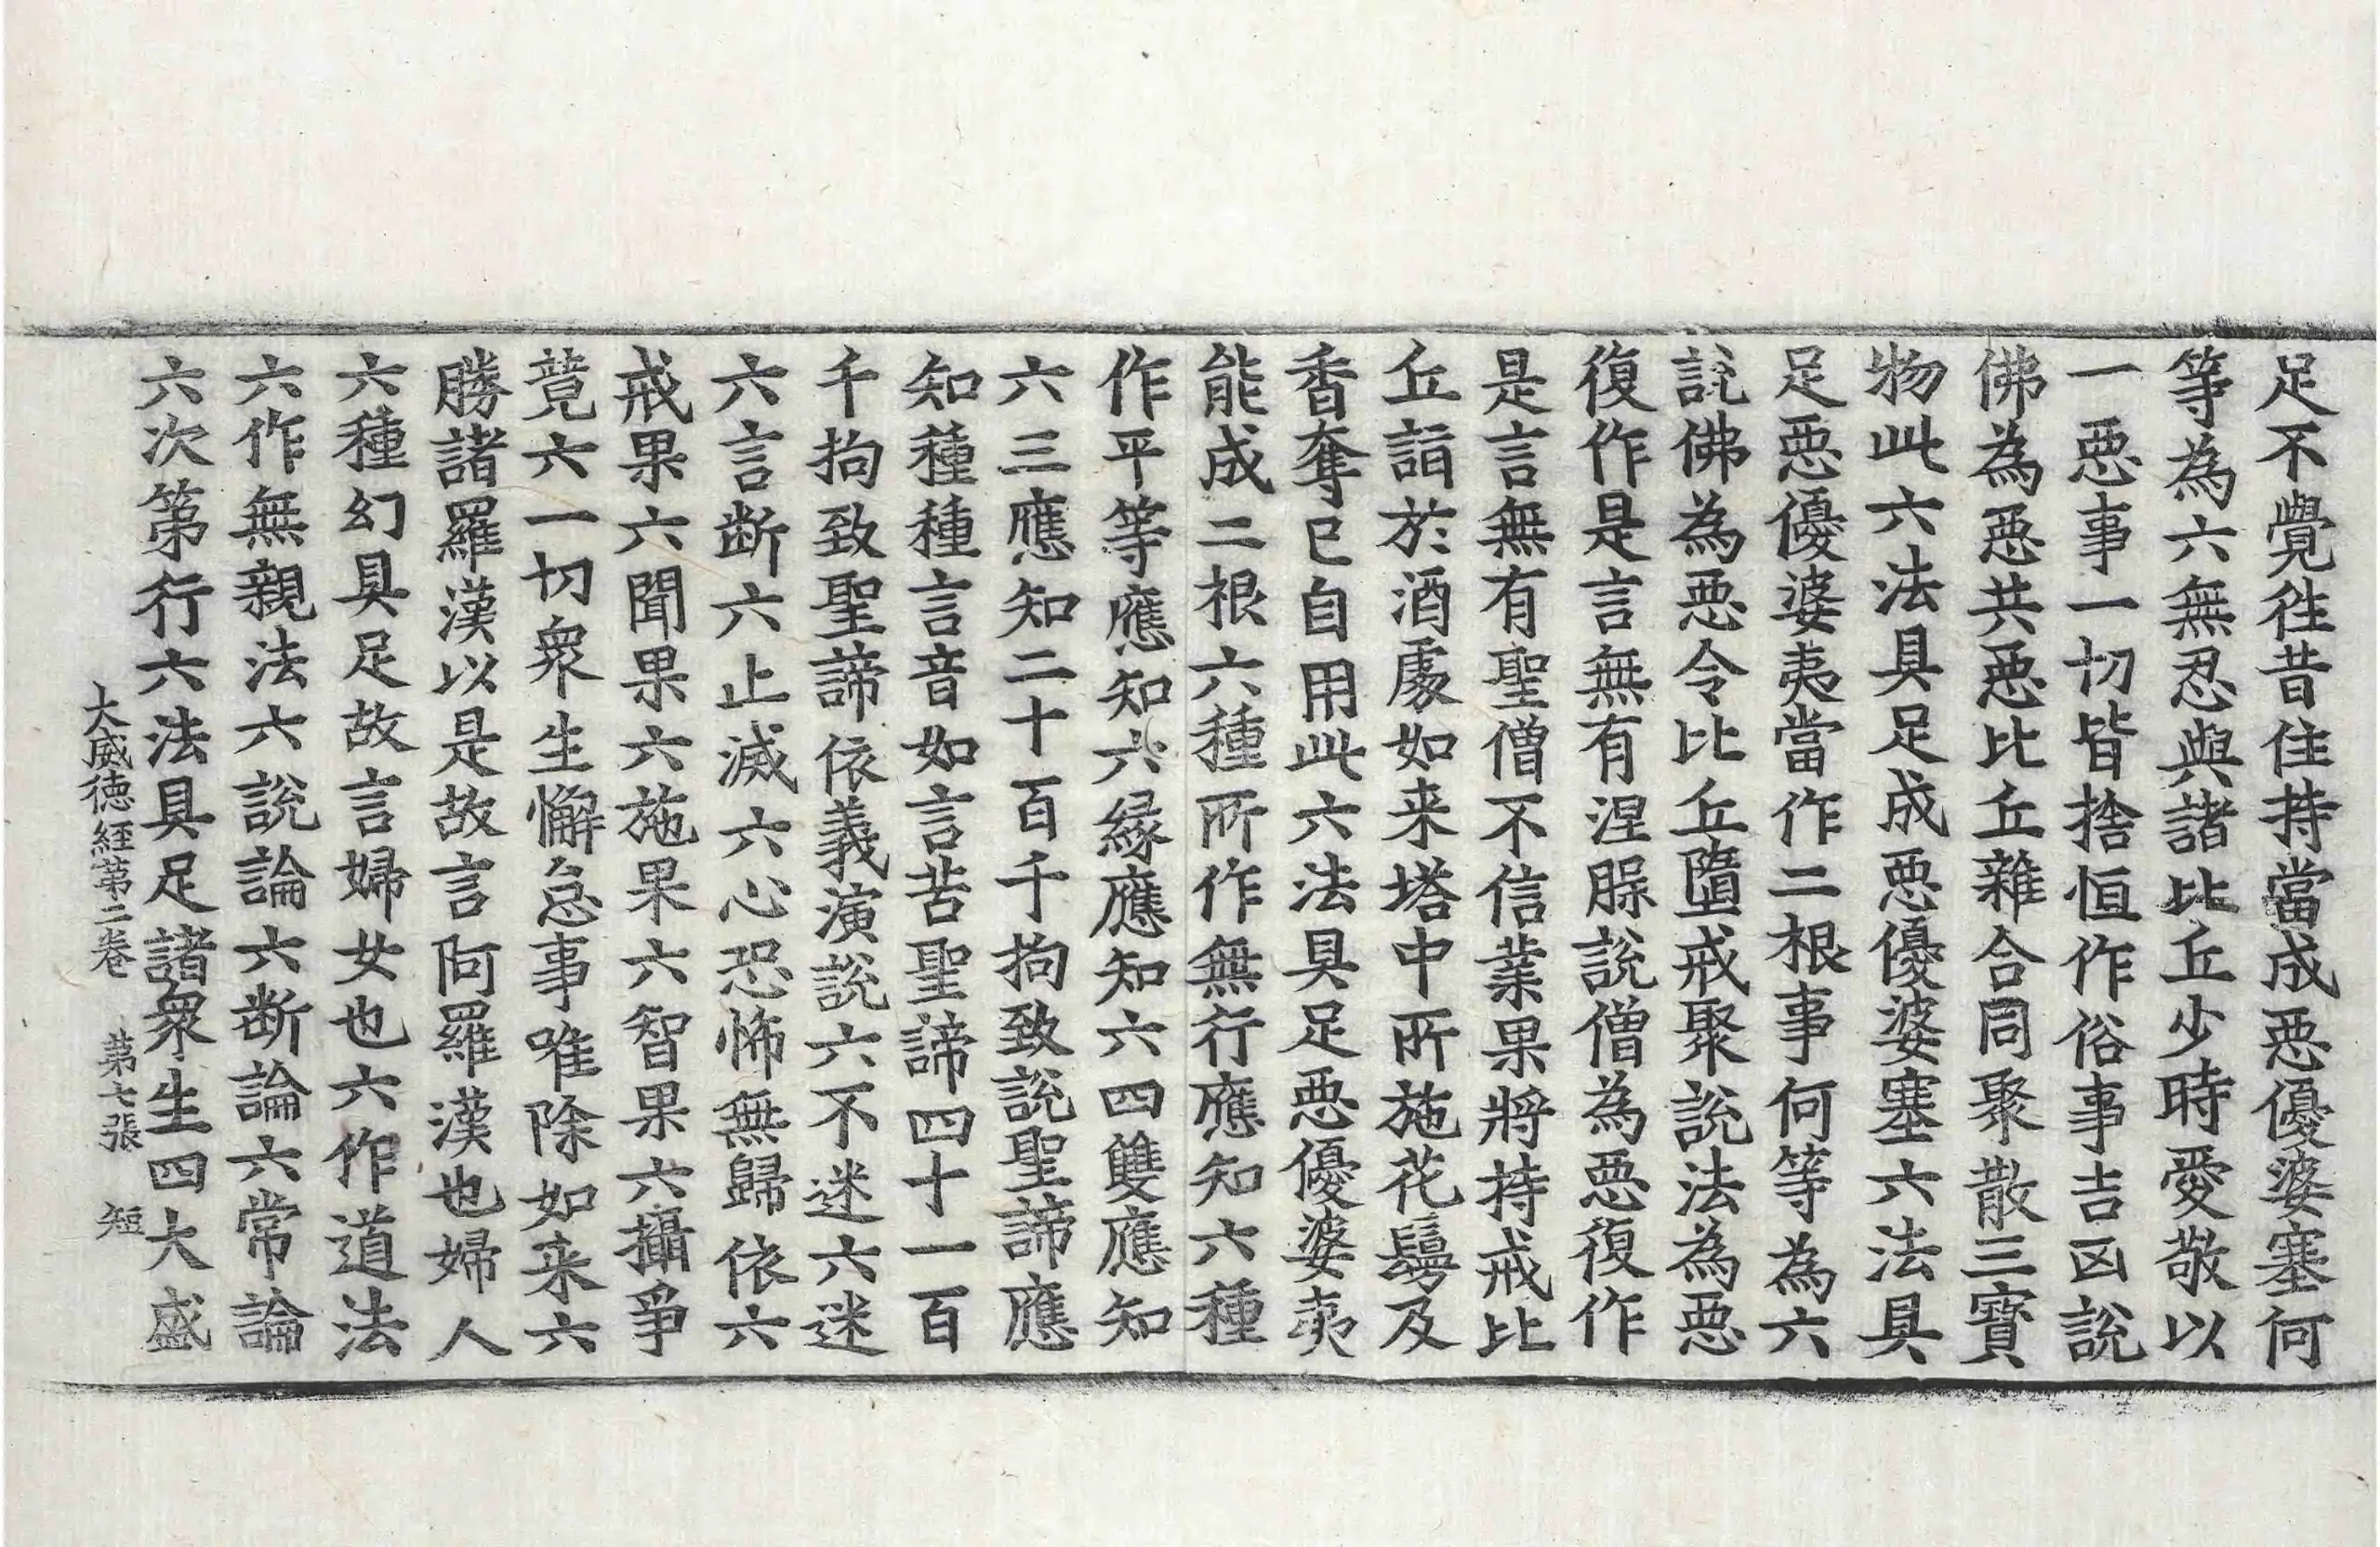 足不覺徃昔住持當成惡優婆塞何
等為六無忍與諸比丘少時愛敬以
一惡事一切皆捨恒作俗事吉凶說
佛為惡共惡比丘雜合同聚散三寶
物此六法具足成惡優婆塞六法具
足惡優婆夷當作二根事何等為六
說佛為惡令比丘墮戒聚說法為惡
復作是言無有涅槃說僧為惡復作
是言無有聖僧不信業果將持戒比
丘詣於酒處如来塔中所施花鬘及
香奪已自用此六法具足惡優婆夷
能成二根六種所作無行應知六種
作平等應知六緣應知六四雙應知
六三應知二十百千拘致說聖諦應
知種種言音如言苦聖諦四十一百
千拘致聖諦依義演說六不迷六迷
六言断六止滅六心恐怖無歸依六
戒果六聞果六施果六智果六攝爭
竟六一切衆生懈怠事唯除如来六
勝諸羅漢以是故言阿羅漢也婦人
六種幻具足故言婦女也六作道法
六作無親法六說論六断論六常論
六次第行六法具足諸衆生四大盛
大威徳経第二卷　第七張　短